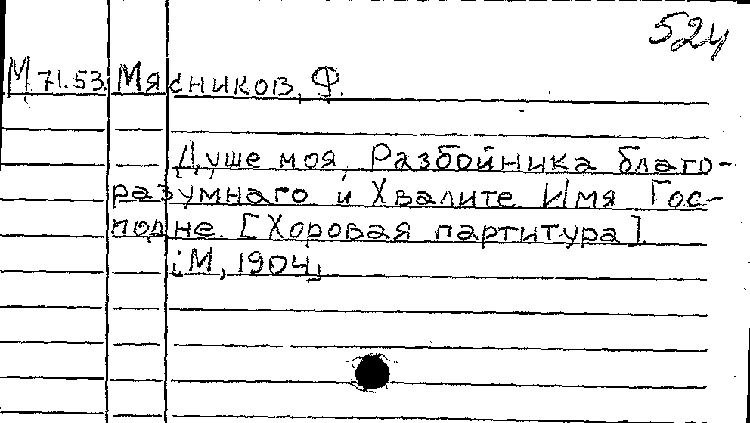 524
М.71.53. Мясников, Ф.
Душе моя, Разбойника благо-
разумнаго и Хвалите Имя Гос-
подне. [Хоровая партитура].
[М, 1904]